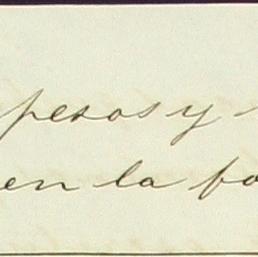 pesos y
en la fo